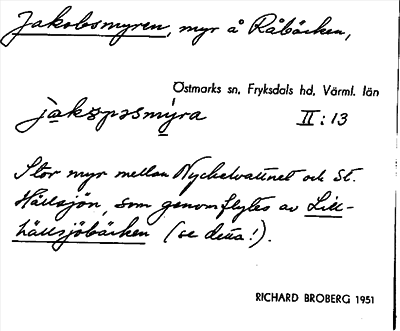 Jakobsmyren, myr å Råbäcken,
Östmarks sn. Fryksdals hd. Värml. län
jakɔpsmýra II:13
Stor myr mellan Nyckelvattnet och St.
Hällsjön, som genomflytes av Lill-
hällsjöbäcken (se detta!).
RICHARD BROBERG 1951